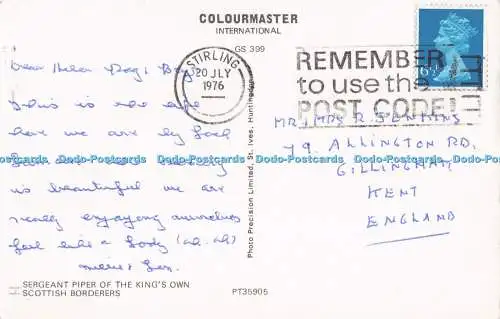 COLOURMASTER
INTERNATIONAL
GS 399
Dear Helen
This is the life
here we are by Loch
is beautiful we are
really enjoying ourselves
feel like a Lady (ah. ah)
STIRLING
20 JLY
1976
REMEMBER
to use the
POST CODE!
6½P
MR, MRS R JENKINS
79 ALLINGTON RD,
GILLINGHAM
KENT
ENGLAND
Photo Precision Limited, St. Ives, Huntingdon
SERGEANT PIPER OF THE KING'S OWN
SCOTTISH BORDERERS
PT35905
Dodo-Postcards Dodo-Postcards Dodo-Postcards Dodo-Postcards Dodo-Postcards Dodo-Postcards